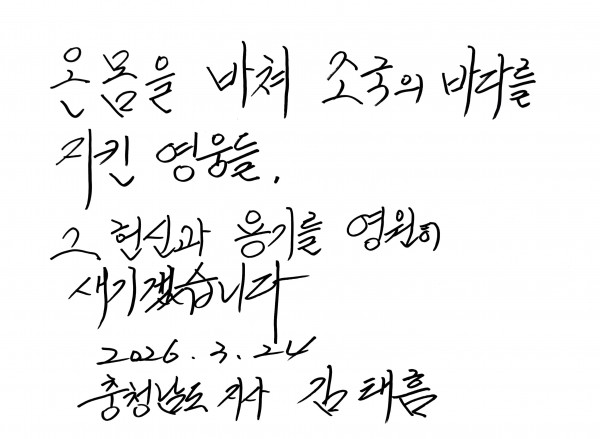 온몸을 바쳐 조국의 바다를
지킨 영웅들,
그 헌신과 용기를 영원히
새기겠습니다
2026. 3. 24
충청남도지사 김태흠